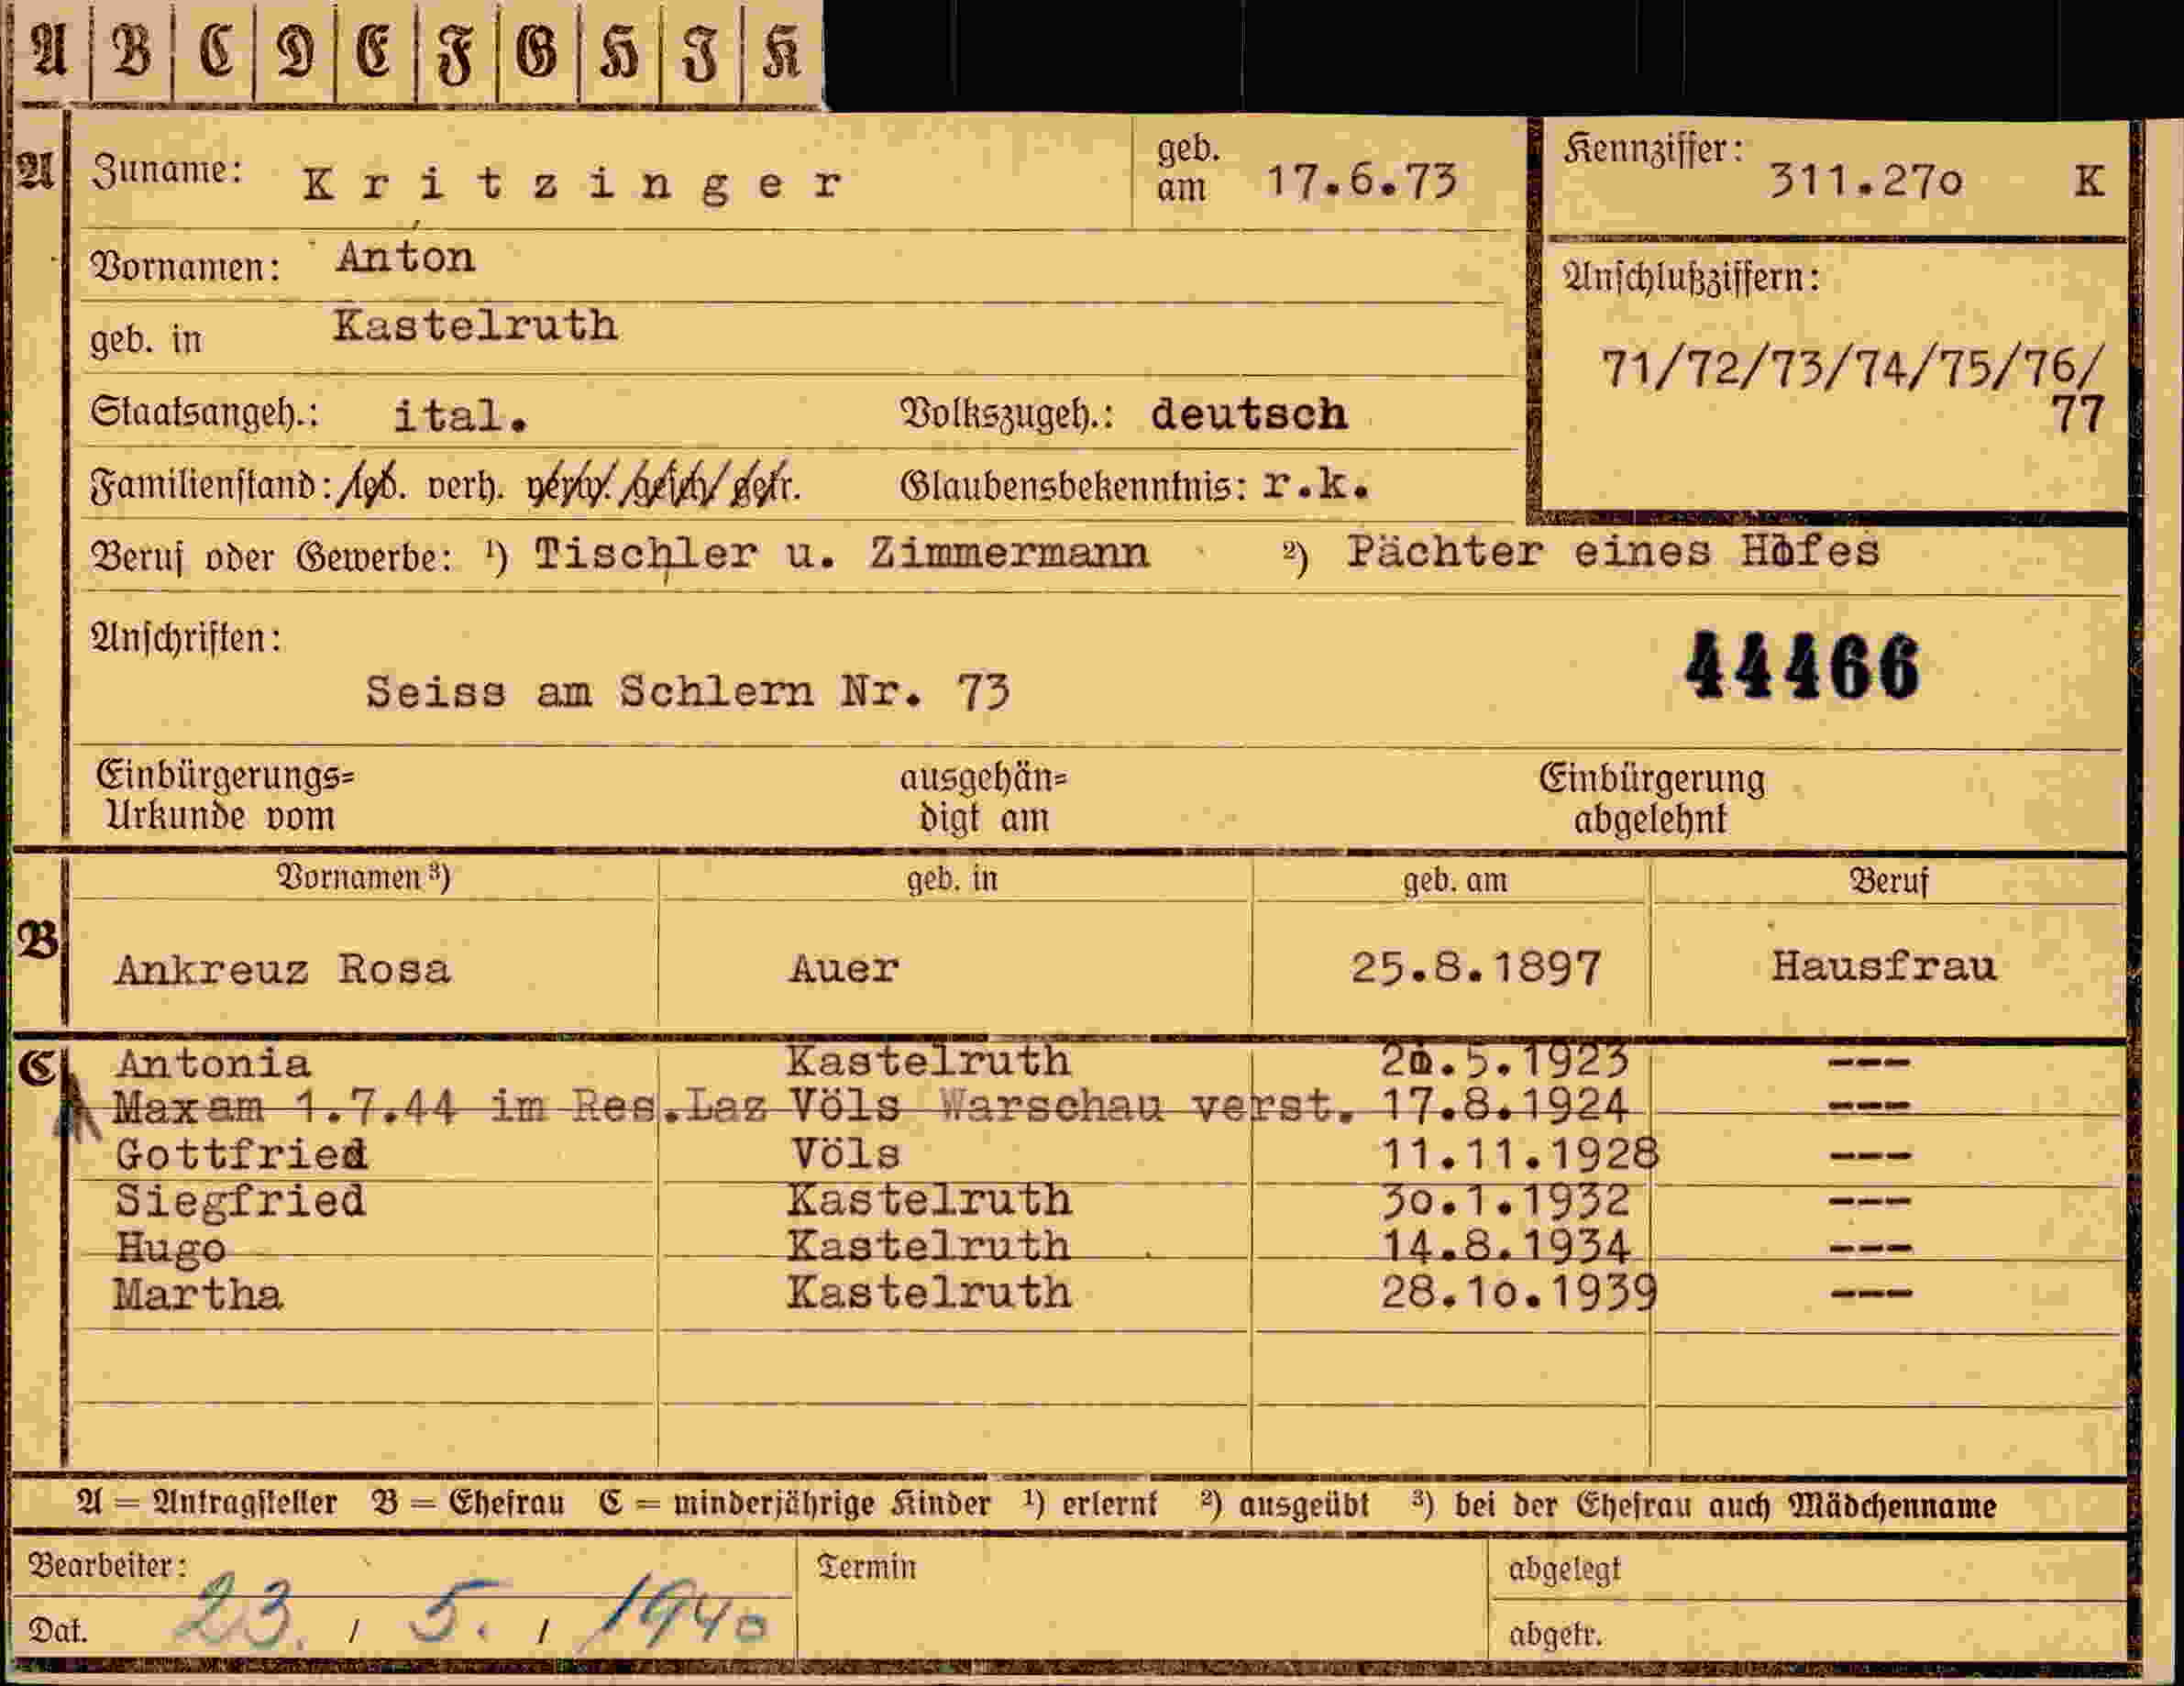 A B C D E F G H I K
A Zuname: Kritzinger geb. am 17.6.73 Kennziffer: 311.27o K
Vornamen: Anton
geb. in Kastelruth
Anschlußziffern: 71/72/73/74/75/76/
77
Staatsangeh.: ital. Volkszugeh.: deutsch
Familienstand: led. verh. verw. gesch. getr. Glaubensbekenntnis: r.k.
Beruf oder Gewerbe: ¹) Tischler u. Zimmermann ²) Pächter eines Hofes
Anschriften:
44466
Seiss am Schlern Nr. 73
Einbürgerungs=
Urkunde vom
ausgehän=
digt am
Einbürgerung
abgelehnt
Vornamen ³) geb. in geb. am Beruf
B Ankreuz Rosa Auer 25.8.1897 Hausfrau
C Antonia Kastelruth .5.1923 ---
Max am 1.7.44 im Res.Laz Völs Warschau verst. 17.8.1924 ---
Gottfried Völs 11.11.1928 ---
Siegfried Kastelruth 3o.1.1932 ---
Hugo Kastelruth 14.8.1934 ---
Martha Kastelruth 28.1o.1939 ---
A = Antragsteller B = Ehefrau C = minderjährige Kinder ¹) erlernt ²) ausgeübt ³) bei der Ehefrau auch Mädchenname
Bearbeiter: Termin abgelegt
Dat. 23. / 5. / 1940 abgetr.